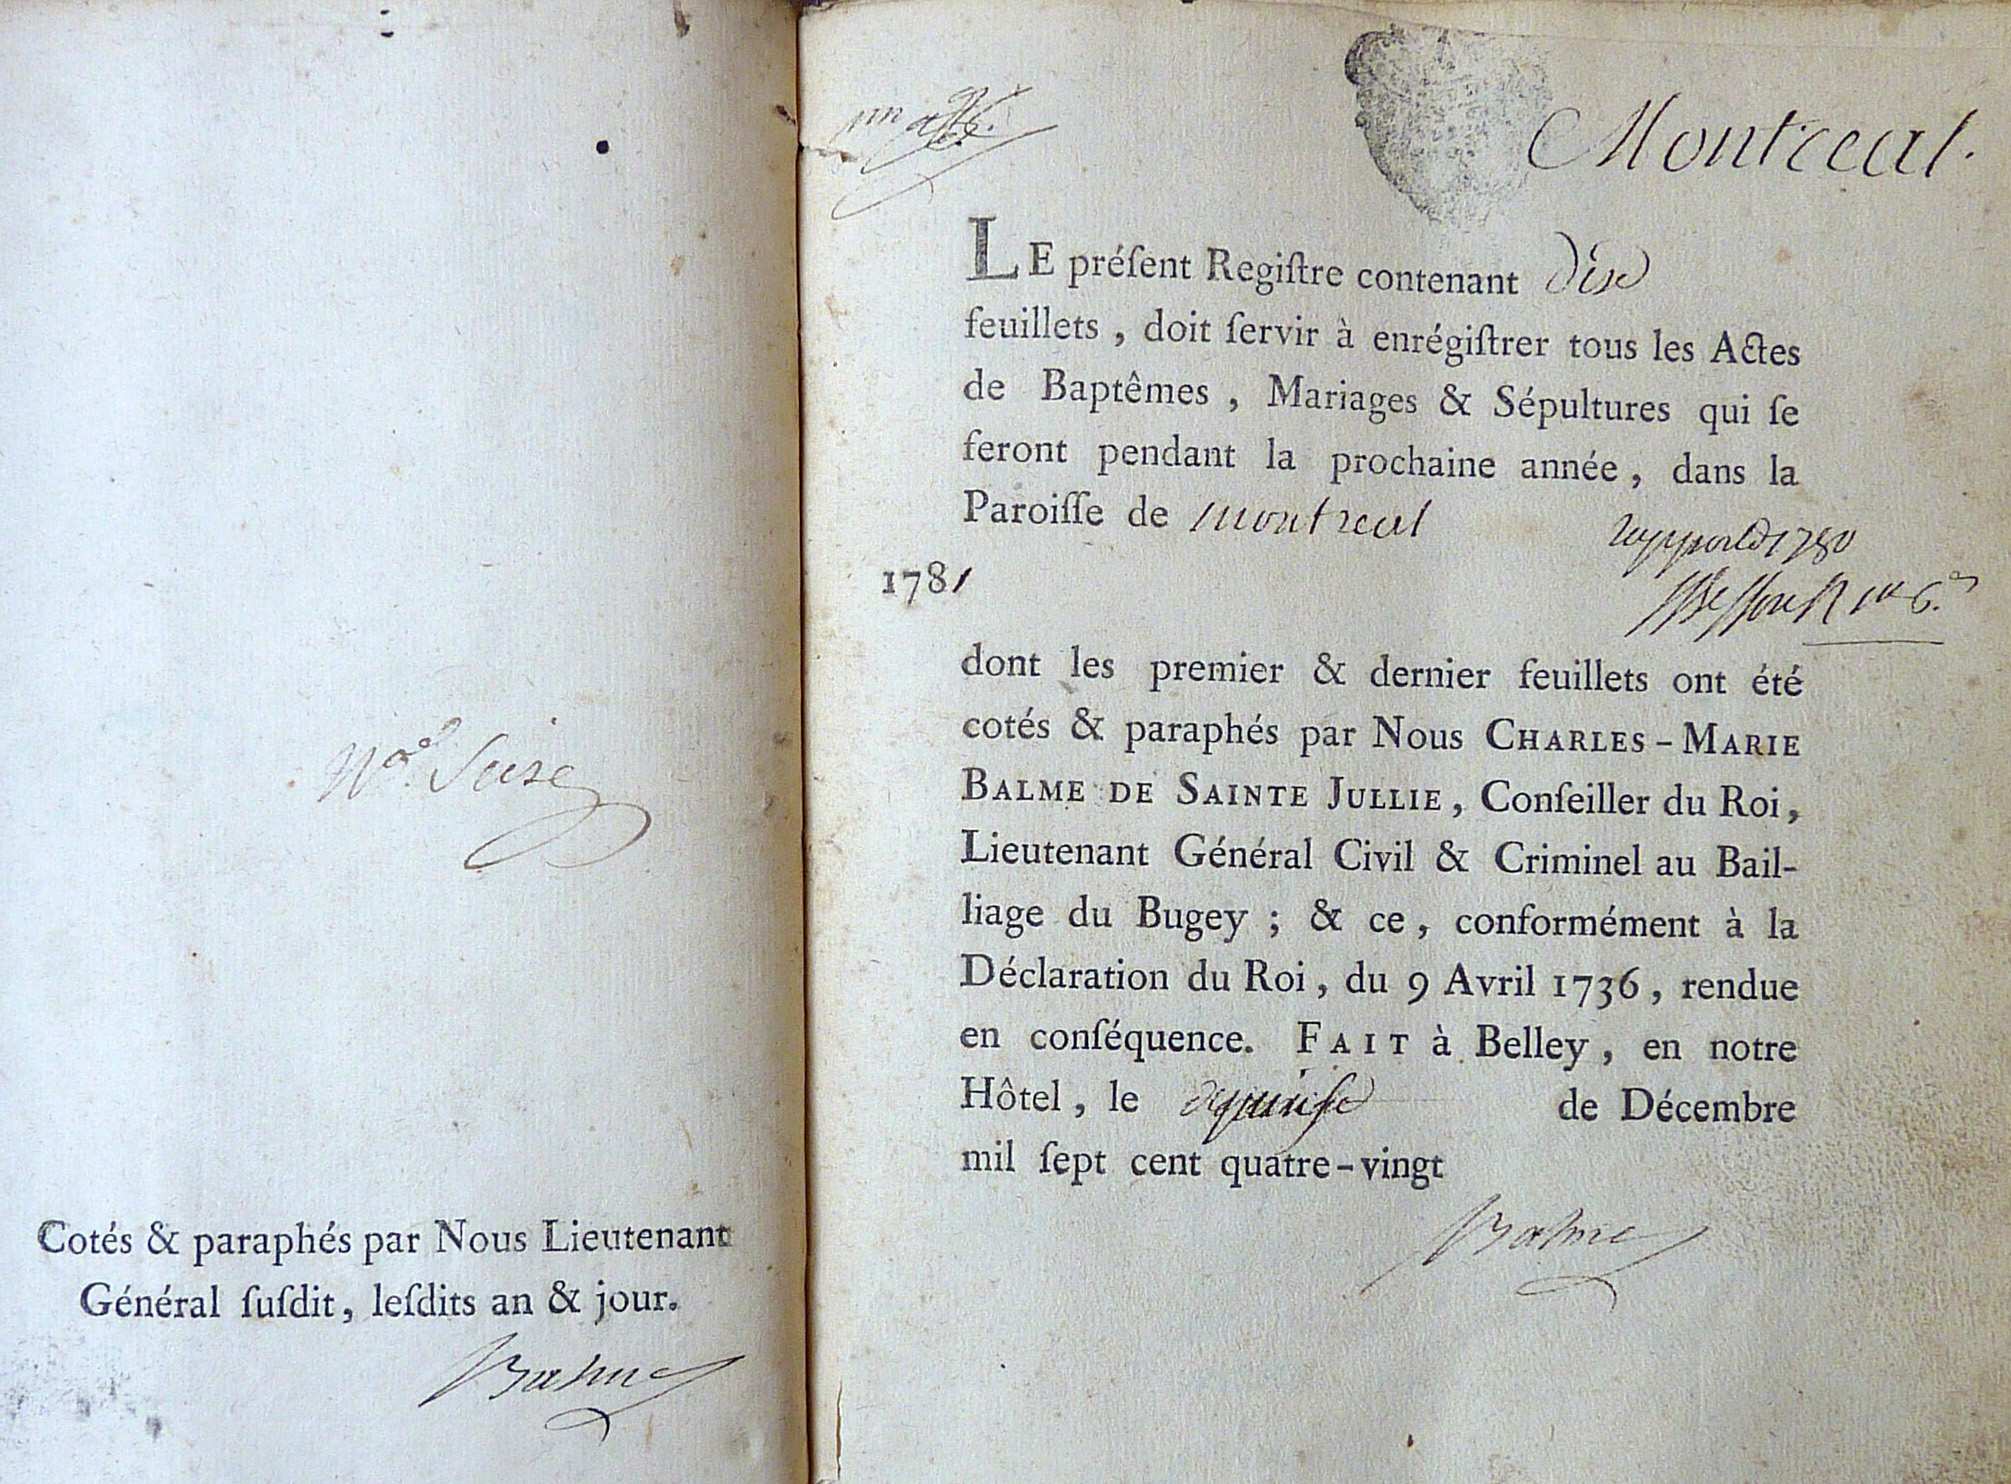 Cotés & paraphés par Nous Lieutenant
Général ſuſdit, leſdits an & jour.
Balme
Montreal.
LE préſent Regiſtre contenant dix
feuillets, doit ſervir à enrégiſtrer tous les Actes
de Baptêmes, Mariages & Sépultures qui ſe
feront pendant la prochaine année, dans la
Paroiſſe de montreal
1780
1781
dont les premier & dernier feuillets ont été
cotés & paraphés par Nous CHARLES-MARIE
BALME DE SAINTE JULLIE, Conſeiller du Roi,
Lieutenant Général Civil & Criminel au Bail-
liage du Bugey; & ce, conformément à la
Déclaration du Roi, du 9 Avril 1736, rendue
en conſéquence. FAIT à Belley, en notre
Hôtel, le de Décembre
mil ſept cent quatre-vingt
Balme